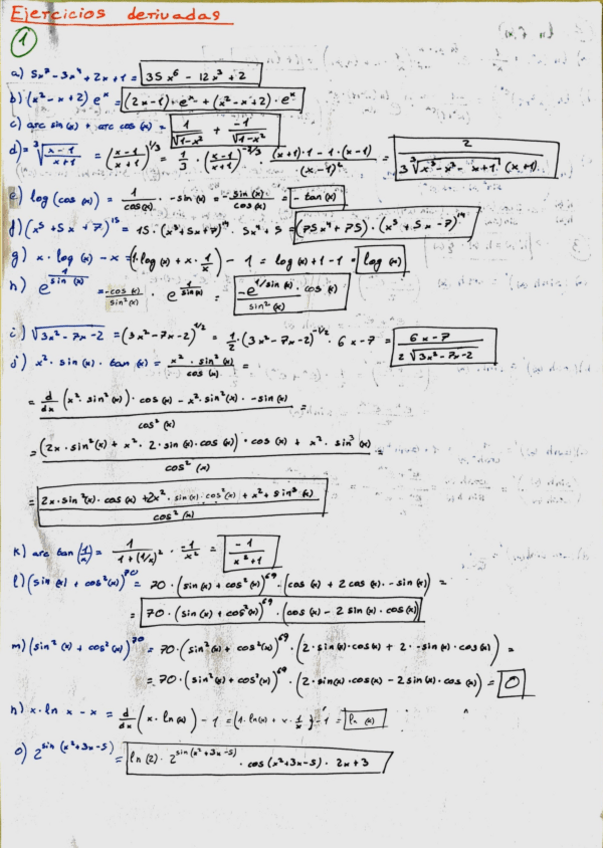 Ejercicios derivadas
1
a) 5x⁷ - 3x⁴ + 2x + 1 = 35x⁶ - 12x³ + 2
b) (x² - x + 2) eˣ = (2x-1) · eˣ + (x² - x + 2) · eˣ
c) arc sin(x) + arc cos(x) = 1/√(1-x²) + -1/√(1-x²)
d) = ³√((x-1)/(x+1)) = ((x-1)/(x+1))^(1/3) = 1/3 · ((x-1)/(x+1))^(-2/3) · ((x+1)·1 - 1·(x-1))/(x-1)² = 2/(3 ³√(x³-x²-x+1) (x+1))
e) log(cos(x)) = 1/cos(x) · -sin(x) = -sin(x)/cos(x) = -tan(x)
f) (x⁵ + 5x + 7)¹⁵ = 15 · (x⁵+5x+7)¹⁴ · 5x⁴ + 5 = (75x⁴ + 75) · (x⁵ + 5x - 7)¹⁴
g) x · log(x) - x = (1·log(x) + x · 1/x) - 1 = log(x) + 1 - 1 = log(x)
h) e^(1/sin(x)) = -cos(x)/sin²(x) · e^(1/sin(x)) = -e^(1/sin(x)) · cos(x)/sin²(x)
i) √(3x² - 7x - 2) = (3x² - 7x - 2)^(1/2) = 1/2 · (3x² - 7x - 2)^(-1/2) · 6x - 7 = (6x-7)/(2√(3x²-7x-2))
j) x² · sin(x) · tan(x) = x² · sin²(x)/cos(x) =
= (d/dx (x² · sin²(x)) · cos(x) - x² · sin²(x) · -sin(x))/cos²(x) =
= ((2x · sin²(x) + x² · 2 · sin(x) · cos(x)) · cos(x) + x² · sin³(x))/cos²(x) =
= (2x · sin²(x) · cos(x) + 2x² · sin(x) · cos²(x) + x² + sin³(x))/cos²(x)
k) arc tan(1/x) = 1/(1+(1/x)²) · -1/x² = -1/(x²+1)
l) (sin(x) + cos²(x))⁷⁰ = 70 · (sin(x) + cos²(x))⁶⁹ · (cos(x) + 2cos(x) · -sin(x)) =
= 70 · (sin(x) + cos²(x))⁶⁹ · (cos(x) - 2 sin(x) · cos(x))
m) (sin²(x) + cos²(x))⁷⁰ = 70 · (sin²(x) + cos²(x))⁶⁹ · (2 · sin(x) · cos(x) + 2 · -sin(x) · cos(x)) =
= 70 · (sin²(x) + cos²(x))⁶⁹ · (2 · sin(x) · cos(x) - 2 sin(x) · cos(x)) = 0
n) x · ln x - x = d/dx (x · ln(x)) - 1 = (1 · ln(x) + x · 1/x) - 1 = ln(x)
o) 2^(sin(x²+3x-5)) = ln(2) · 2^(sin(x²+3x-5)) · cos(x²+3x-5) · 2x+3